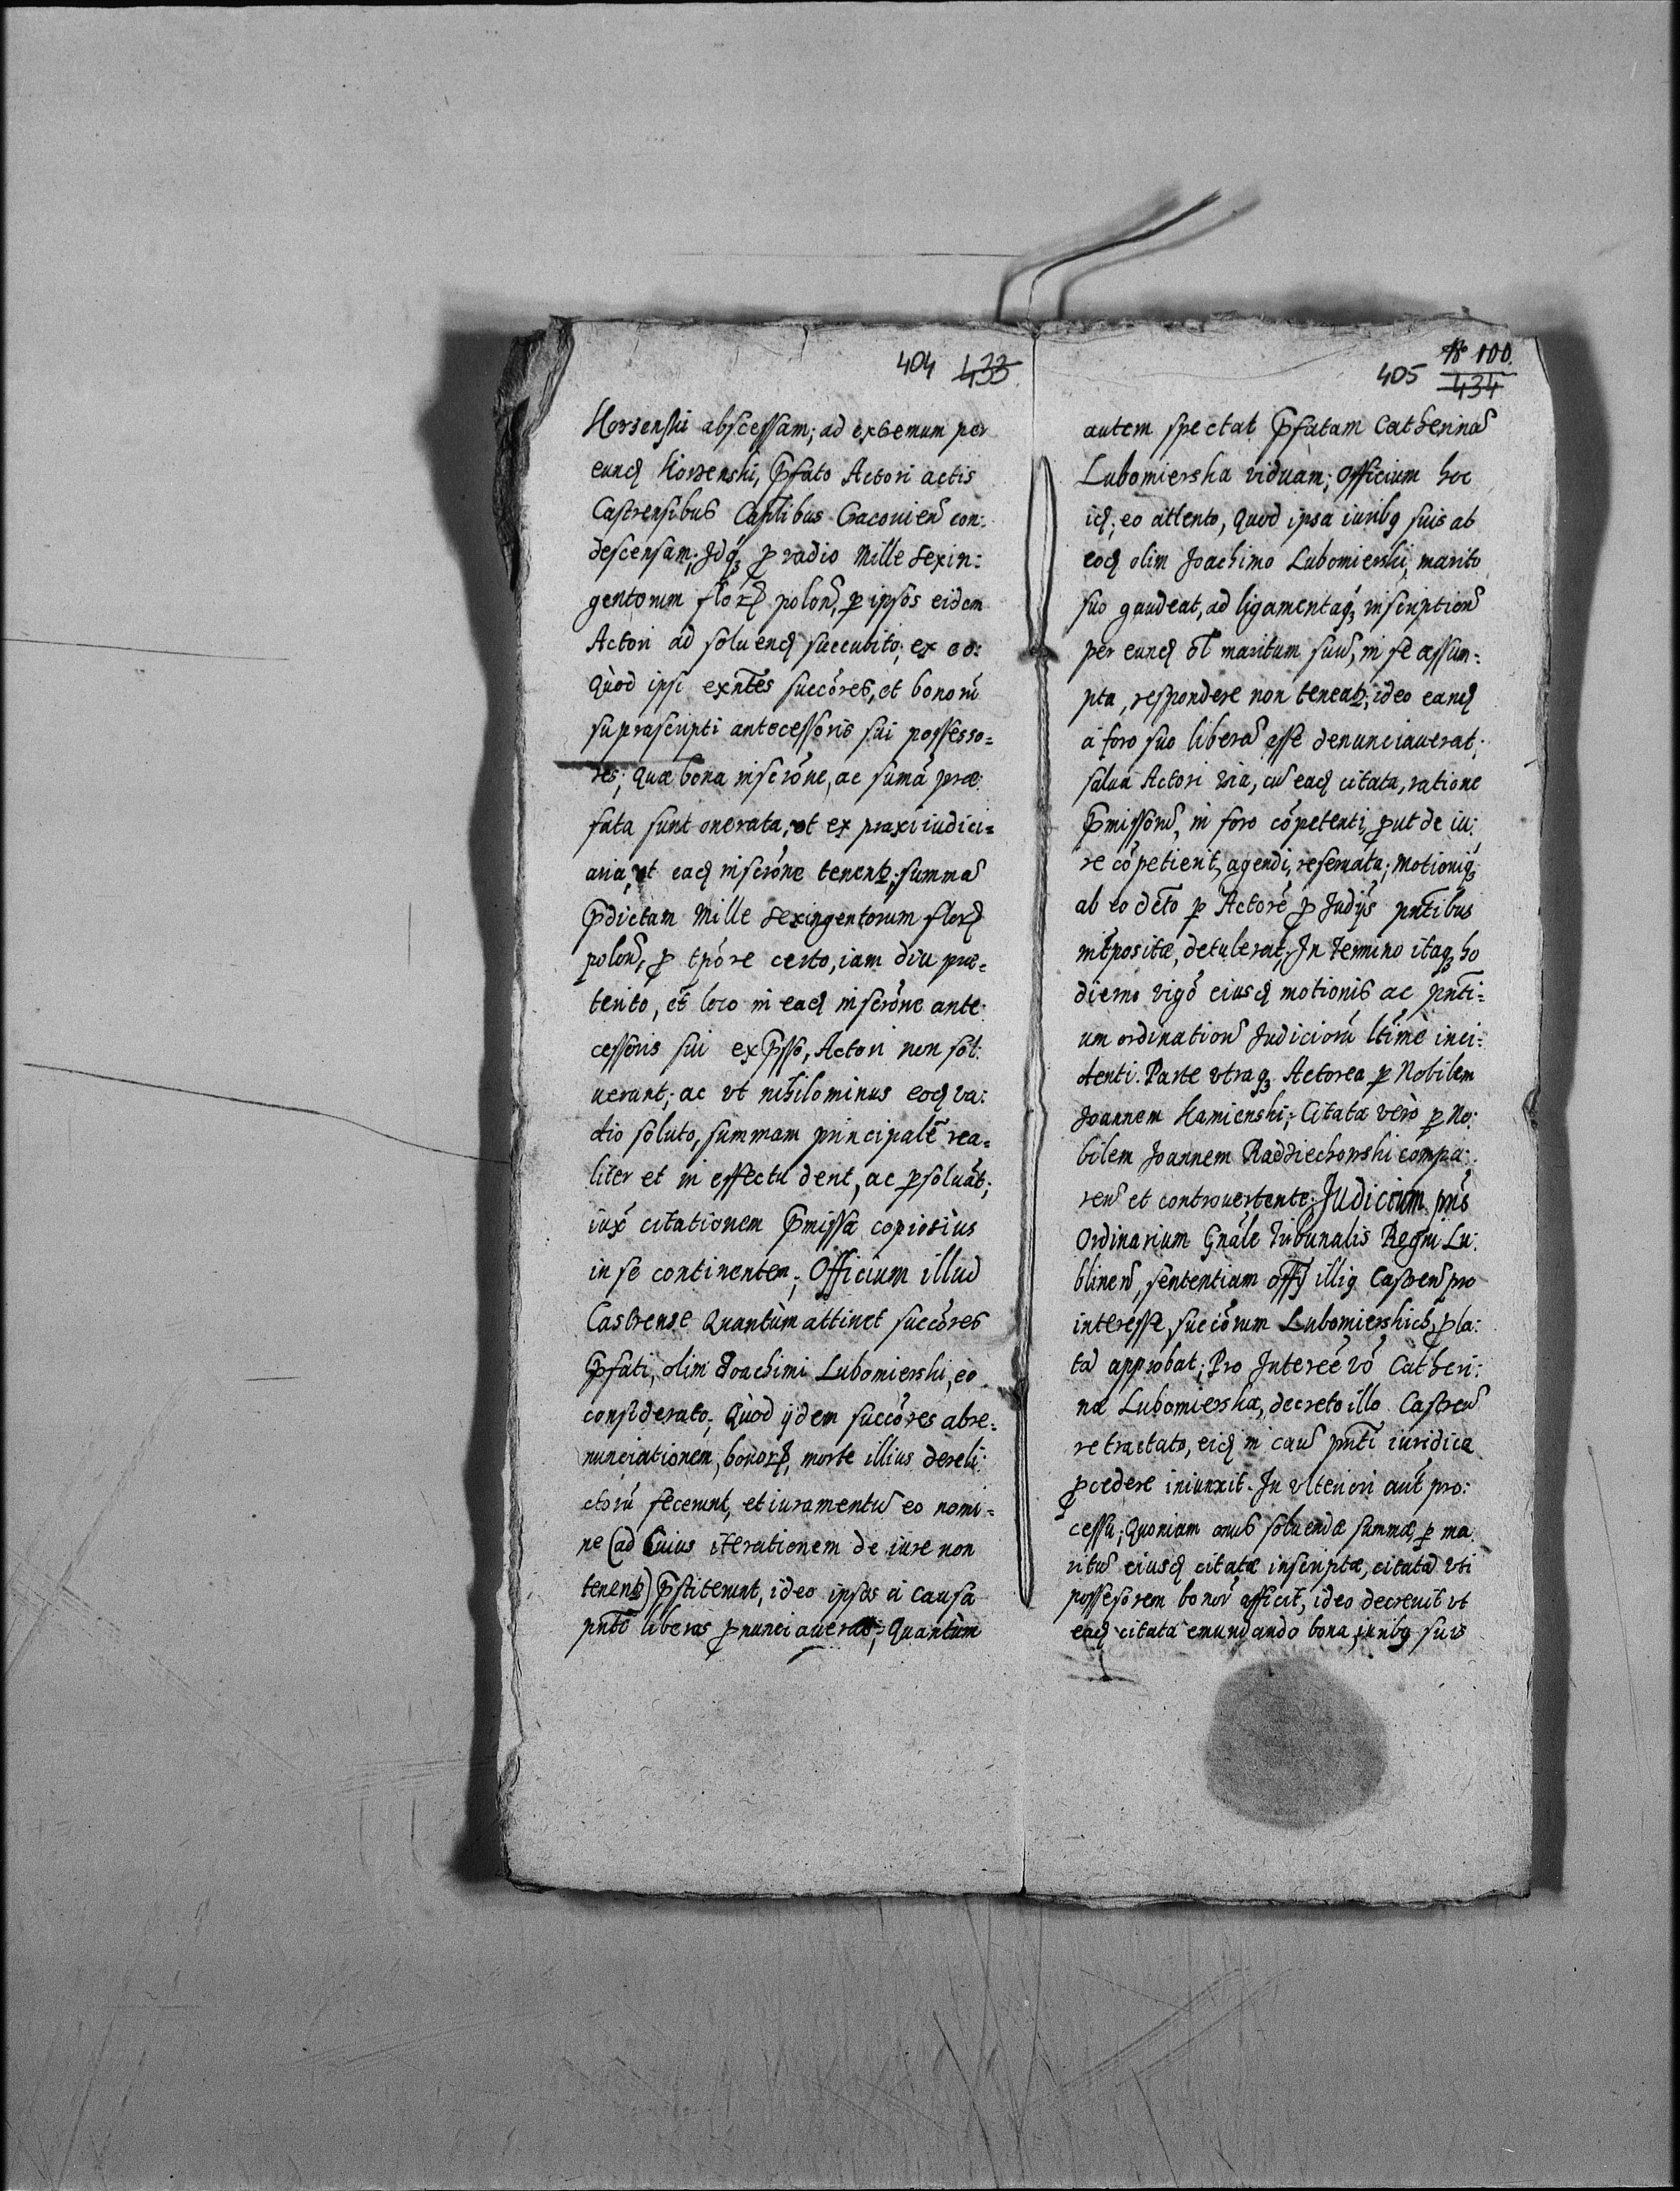 404 433
Horzenski abscessam; ad extremum per
eund Horzenski, Pfato Actori actis
Castrensibus Caplibus Cracovien con:
descensam; Idq3 p vadio Mille sexin:
gentorum flor polon, p ipsos eidem
Actori ad soluend succubito; ex eo:
Quòd ipsi exñtes succores, et bonorũ
suprascripti antecessoris sui possesso=
res; Quæ bona inscrõne, ac sumã præ:
fata sunt onerata, et ex praxi iudici=
aria, ut ead inscrõne tenent; summã
Pdictam Mille sexingentorum flor
polon, p tpóre certo, iam diu præ=
terito, et loco in ead inscrõne ante:
cessoris sui expsso, Actori non sol:
uerunt; ac vt nihilominus eod va:
dio soluto, summam principalẽ rea=
liter et in effectu dent, ac psoluãt;
iux̃ citationem Pmissa copiosius
in se continenten; Officium illud
Castrense Quantùm attinet succóres
Pfati, olim Joachimi Lubomierski, eo
considerato; Quòd ijdem succóres abre=
nunciationem, bonor, morte illius dereli:
ctorũ fecerunt, et iuramentũ eo nomi=
ne (ad Cuius iterationem de iure non
tenent) Pstiterunt, ideo ipsos à causa
pñti liberos pnunciauerat; Quantùm
No 100.
405 434
autem spectat Pfatam Catherinã
Lubomierska viduam; Officium hoc
id; eo attento, Quod ipsa iurib9 suis ab
eod olim Joachimo Lubomierski, marito
suo gaudeat, ad ligamentaq3 inscription
per eund ol maritum suũ, in se assum=
pta, respondere non teneat; ideo eand
à foro suo liberã esse denunciauerat;
salua Actori via, cũ ead citata, ratione
Pmissorũ, in foro cõpetenti, put de iu:
re cõpetient, agendi, reseruata; Motioniq3
ab eo deto p Actorẽ p Judijs pñtibus
intposita, detulerat; In Termino itaq3 ho
dierno vigõ eiusd motionis ac pñti=
um ordination Judiciorũ ltime inci:
denti. Parte vtraq3 Actorea p Nobilem
Joannem Kamienski; Citata verò p No:
bilem Joannem Raddiechowski compa:
ren et controuertente; Judicium pñs
Ordinarium Gñale Tribunalis Regni Lu:
blinen, sententiam offij illi9 Castren pro
interesse, succórum Lubomierskich, pla:
tã approbat; Pro Intereẽ vò Catheri:
næ Lubomierska, decreto illo Castren
retractato, eid in cau pñti iuridice
pcedere iniunxit. In vlteriori aut pro:
cessu; Quoniam onus soluendæ summæ, p ma
ritũ eiusd citatæ inscriptæ, citatã vti
possesorem bonorũ afficit, ideo decreuit vt
ead citata emundando bona, iurib9 suis